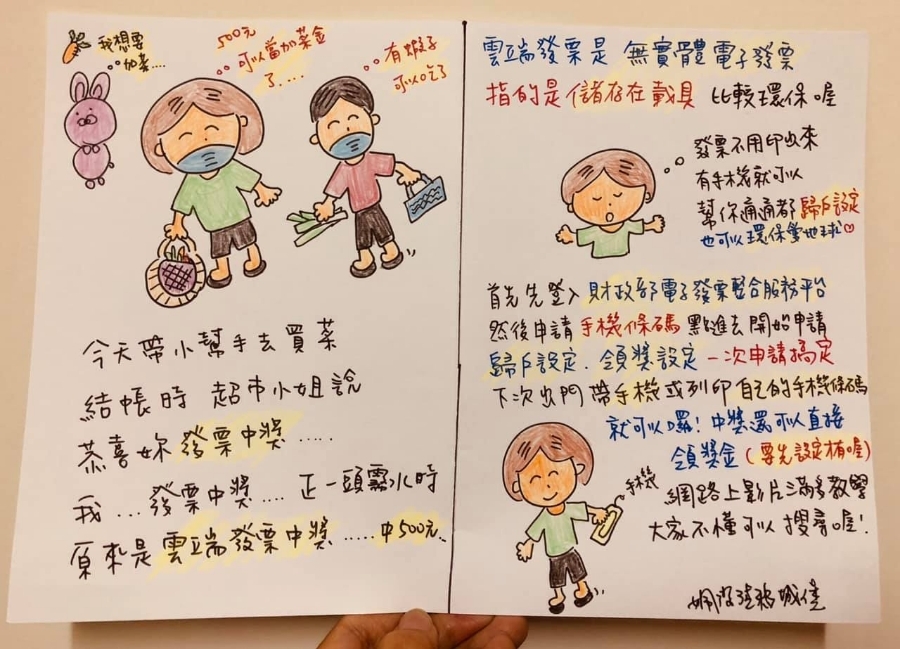 我想要
加菜....
500元
可以當加菜金
了....
有蝦子
可以吃了
今天帶小幫手去買菜
結帳時 超市小姐說
恭喜妳發票中獎.....
我...發票中獎....正一頭霧水時
原來是雲端發票中獎.....中500元..
雲端發票是 無實體電子發票
指的是儲存在載具 比較環保喔
發票不用印出來
有手機就可以
幫你通通都歸戶設定
也可以環保愛地球♡
首先先登入 財政部電子發票整合服務平台
然後申請 手機條碼 點進去開始申請
歸戶設定.領獎設定 一次申請搞定
下次出門帶手機或列印自己的手機條碼
就可以囉!中獎還可以直接
領獎金(要先設定有喔)
手機
網路上影片滿多教學
大家不懂可以搜尋喔!